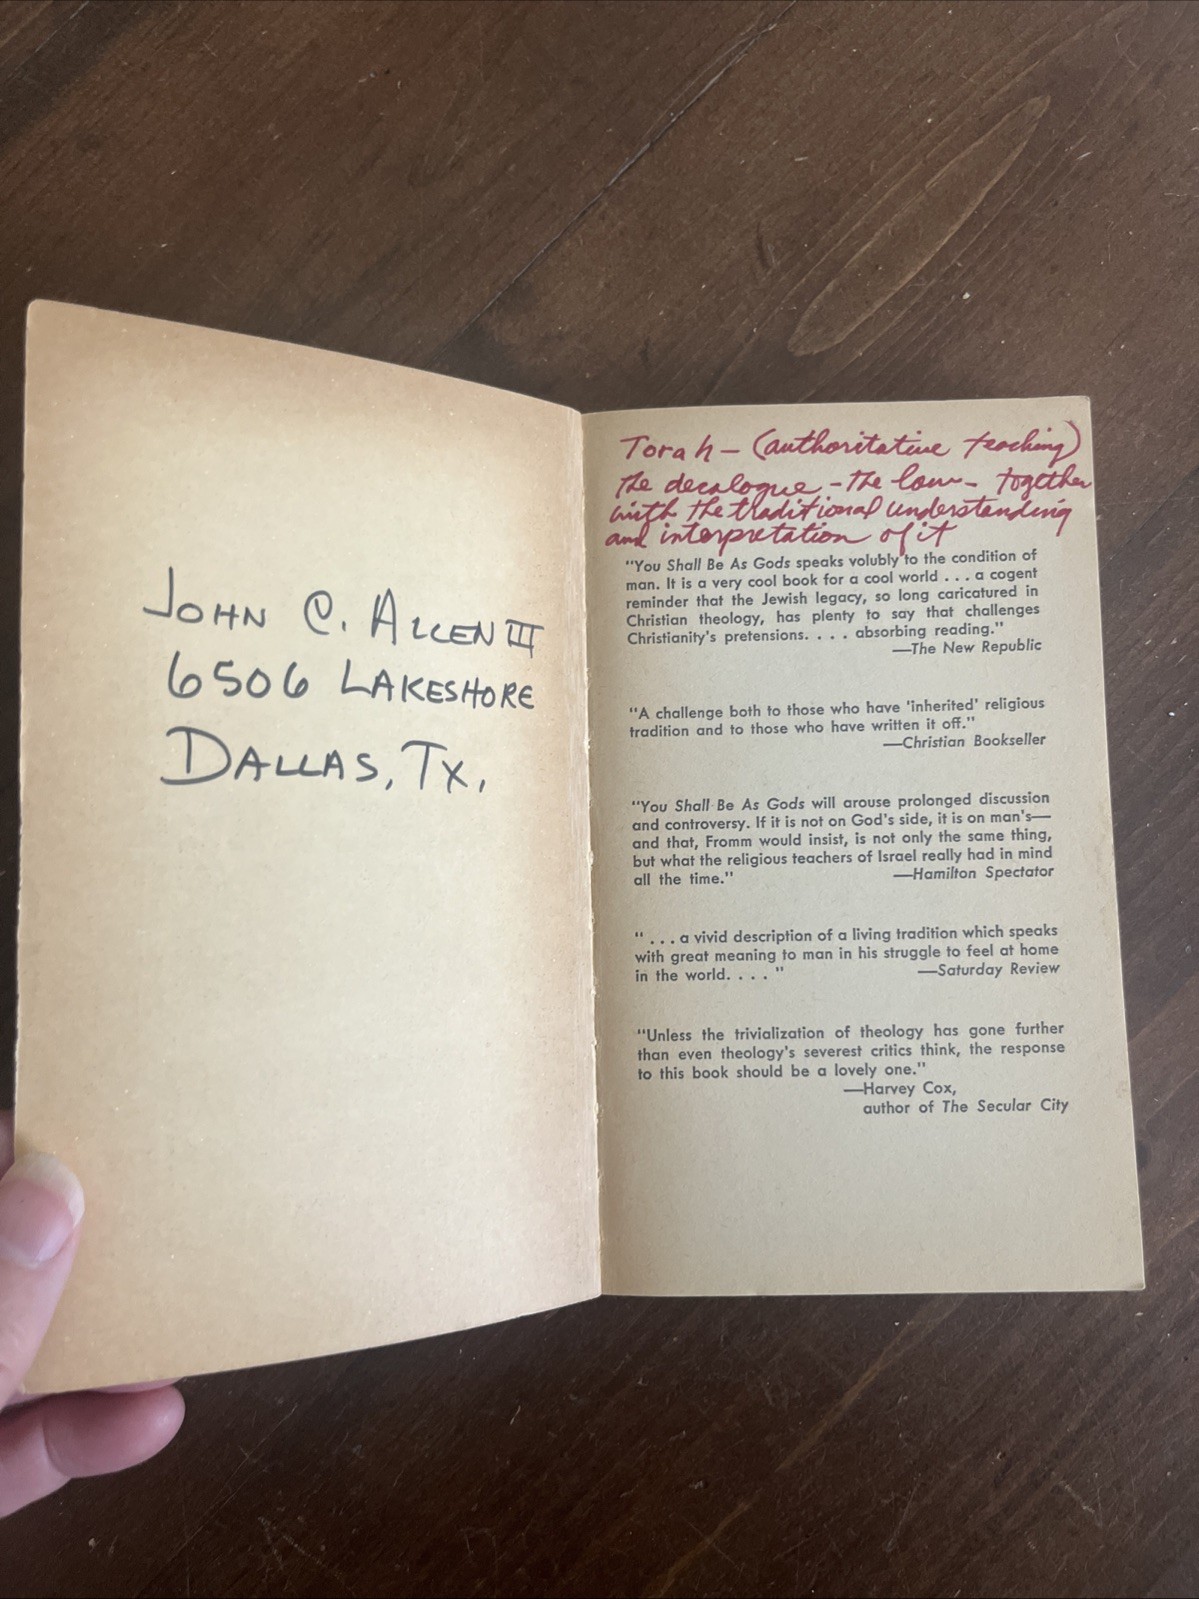 JOHN C. ALLEN III
6506 LAKESHORE
DALLAS, TX.
Torah – (authoritative teaching)
The decalogue – the law – together
with the traditional understanding
and interpretation of it
"You Shall Be As Gods speaks volubly to the condition of
man. It is a very cool book for a cool world . . . a cogent
reminder that the Jewish legacy, so long caricatured in
Christian theology, has plenty to say that challenges
Christianity's pretensions. . . . absorbing reading."
—The New Republic
"A challenge both to those who have 'inherited' religious
tradition and to those who have written it off."
—Christian Bookseller
"You Shall Be As Gods will arouse prolonged discussion
and controversy. If it is not on God's side, it is on man's—
and that, Fromm would insist, is not only the same thing,
but what the religious teachers of Israel really had in mind
all the time." —Hamilton Spectator
" . . . a vivid description of a living tradition which speaks
with great meaning to man in his struggle to feel at home
in the world. . . . " —Saturday Review
"Unless the trivialization of theology has gone further
than even theology's severest critics think, the response
to this book should be a lovely one."
—Harvey Cox,
author of The Secular City